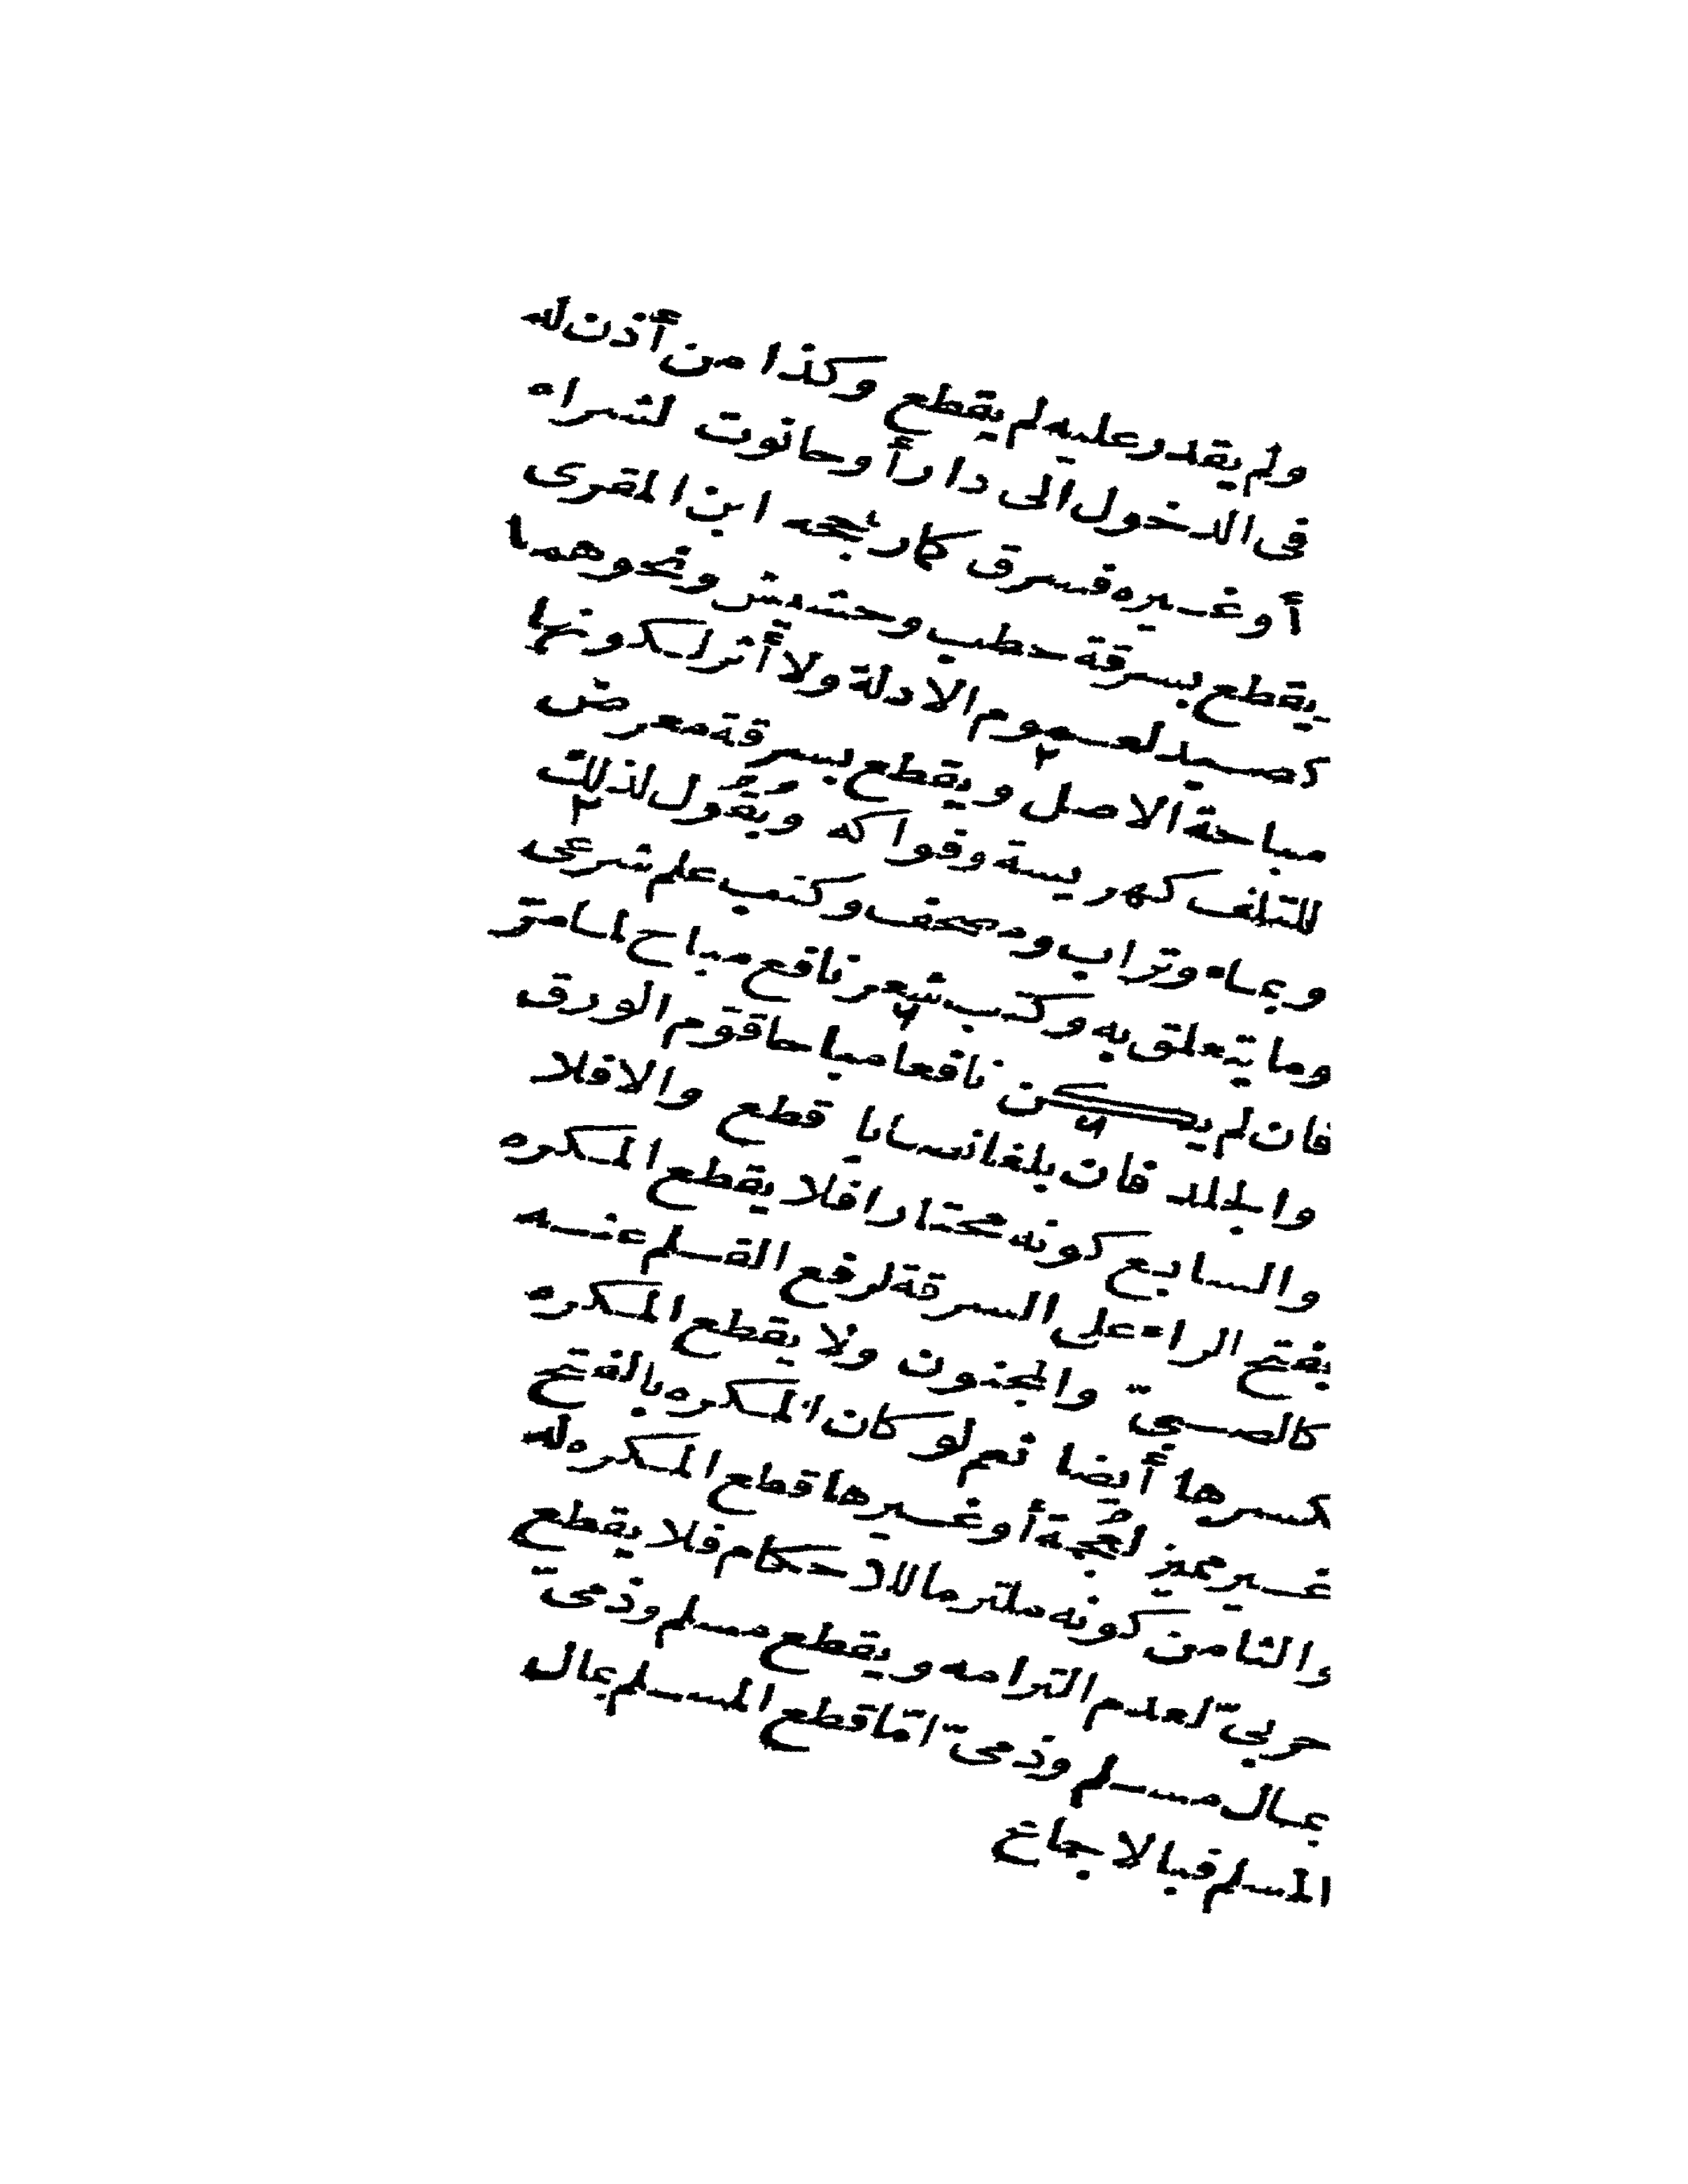 ولم يقدر عليه لم يقطع وكذا من أذن له
فى الدخول الى دار أو حانوت لشراء
أو غيره فسرق كما رجحه ابن المقرى
يقطع بسرقة حطب وحشيش ونحوهما
كصيد لعموم الادلة ولا أثر لكونها
مباحة الاصل ويقطع بسرقة معرض
للتلف كهريسة وفواكه وبقول لذلك
وبماء وتراب ومصحف وكتب علم شرعى
وما يتعلق به وكتب شعر نافع مباح لما مرّ
فان لم يكن نافعا مباحا قوّم الورق
والجلد فان بلغا نصابا قطع والا فلا
والسابع كونه مختارا فلا يقطع المكره
بفتح الراء على السرقة لرفع القلم عنه
كالصبىّ والمجنون ولا يقطع المكره
بكسرها أيضا نعم لو كان المكره بالفتح
غير مميز لعجمة أو غيرها قطع المكره له
والثامن كونه ملتزما للاحكام فلا يقطع
حربىّ لعدم التزامه ويقطع مسلم وذمىّ
بمال مسلم وذمىّ امّا قطع المسلم بمال
المسلم فبالاجماع